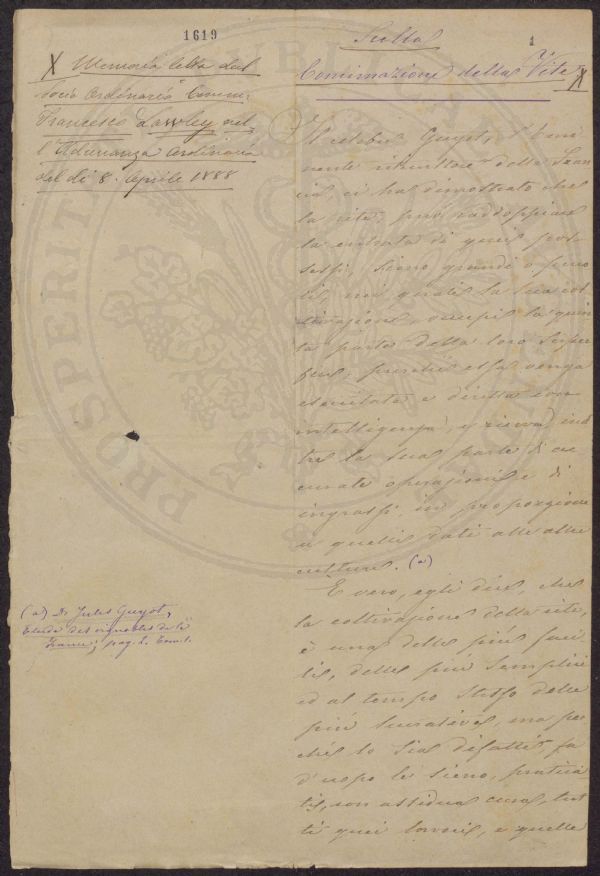 1619
1
X Memoria letta dal
socio ordinario Comm:
Francesco Lawley nel
l'Adunanza ordinaria
del dì 8. Aprile 1888
Sulla
Concimazione della Vite X
Il celebre Guyot, l'emi
nente viticultore della Fran
cia, ci ha dimostrato che
la vite, può raddoppiare
la entrata di quei pos
sessi, sieno grandi o picco
li, nei quali la sua col
tivazione, occupi la quin
ta parte della loro super
fice, purchè essa venga
esercitata e diretta con
intelligenza, e riceva, inol
tre la sua parte di ac
curate operazioni e di
ingrassi, in proporzione
a quelli dati alle altre
culture. (a)
È vero, egli dice, che
la coltivazione della vite,
è una delle più faci
li, delle più semplici
ed al tempo stesso delle
più lucrative, ma per
chè lo sia difatti, fa
d'uopo le sieno, pratica
ti, con assidua cura, tut
ti quei lavori, e quelle
(a) Dr Jules Guyot,
Etude des vignobles de la
France; pag. 2. Tom. 1.
PROSPERITÀ
PUBBLICA